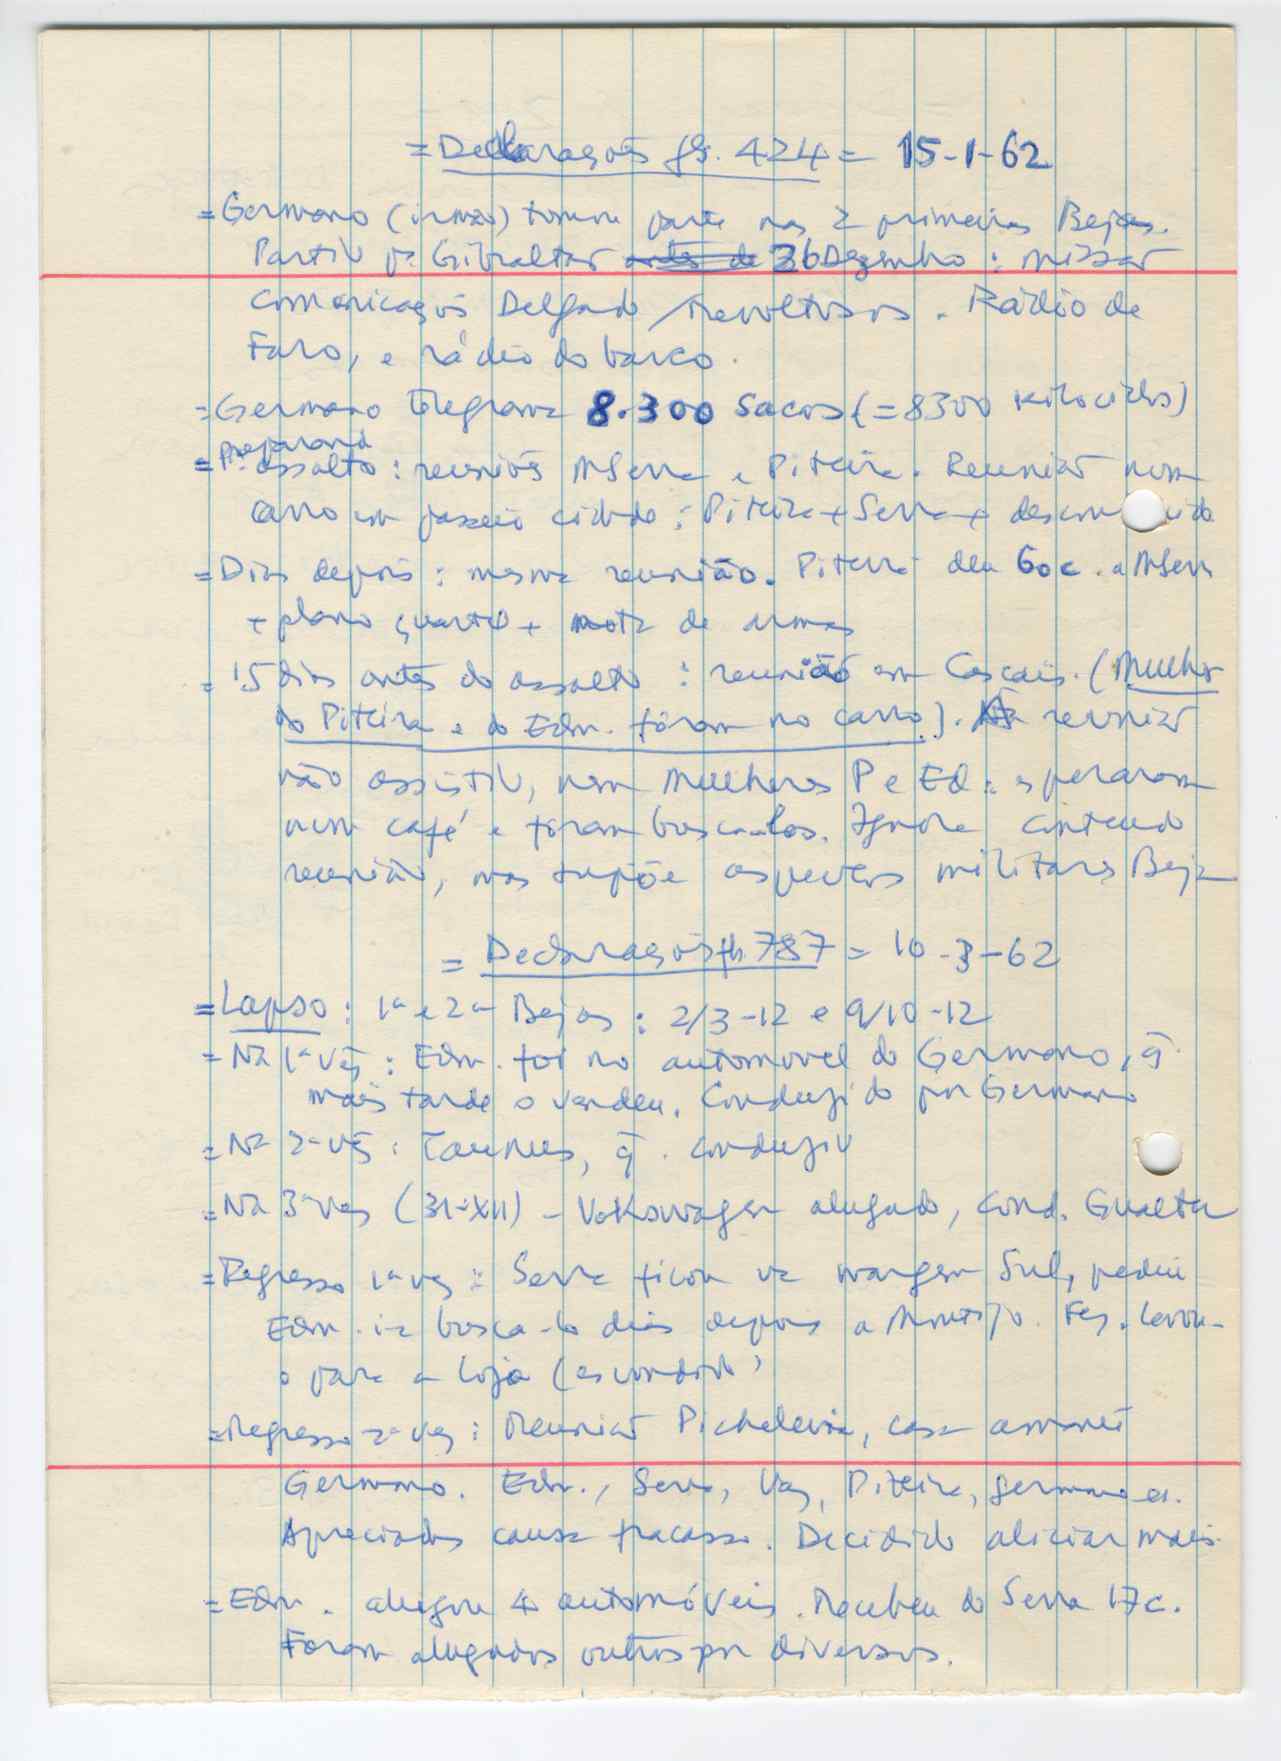 = Declarações fs. 424 = 15-1-62
= Germano (irmão) tomou parte nas 2 primeiras Bejas.
Partiu pa. Gibraltar antes de 26 Dezembro : missão
comunicações Delgado / revoltosos. Rádio de
Faro, e rádio do barco.
= Germano telegrama 8.300 sacos (= 8300 kilociclos)
preparand
= Pa. assalto : reuniões MServa e Piteira. Reunião num
carro em passeio cidade : Piteira + Serra + desconhecido
= Dias depois : mesma reunião. Piteira deu 60c. a MSerra
+ plano quartel + nota de armas
= 15 dias antes do assalto : reunião em Cascais. (Mulher
do Piteira e do Edm. foram no carro). À reunião
não assistiu, nem mulheres P e Ed : esperaram
num café e foram busca-los. Ignora conteudo
reunião, mas supõe aspectos militares Beja
= Declarações fs. 787 = 10-3-62
= Lapso : 1ª e 2ª Bejas : 2/3-12 e 9/10-12
= Na 1ª vez : Edm. foi no automovel do Germano, q̃.
mais tarde o vendeu. Conduzido por Germano
= Na 2ª vez : Taunus, q̃. conduziu
= Na 3ª vez (31-XII) - Volkswagen alugado, cond. Gualter
= Regresso 1ª vez : Serra ficou na margem Sul, pediu
Edm. ir busca-lo dias depois a Montijo. Fez. Levou-
o para a loja (escondido)
= Regresso 2ª vez : Reunião Picheleira, casa amante
Germano. Edm., Serra, Vaz, Piteira, Germano e.
Apreciadas causa fracasso. Decidido aliciar mais.
= Edm. alugou 4 automóveis. Recebeu do Serra 17c.
Foram alugados outros por diversos.